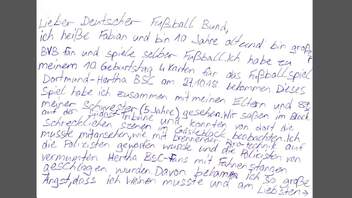 Lieber Deutscher Fußball Bund,
ich heiße Fabian und bin 10 Jahre alt und bin großer
BVB Fan und spiele selber Fußball. Ich habe zu
meinem 10. Geburtstag 4 Karten für das Fußballspiel
Dortmund-Hertha BSC am 27.10.18 bekommen. Dieses
Spiel habe ich zusammen mit meinen Eltern und
meiner Schwester (5 Jahre) gesehen. Wir saßen im Block
auf der Tribüne und konnten von dort die
schrecklichen Szenen im Gästeblock beobachten. Ich
musste mitansehen, wie mit brennender Pyrotechnik auf
die Polizisten geworfen wurde und die Polizisten von
vermummten Hertha BSC-Fans mit Fahnenstangen
geschlagen wurden. Davon bekam ich so große
Angst, dass ich weinen musste und am Liebsten